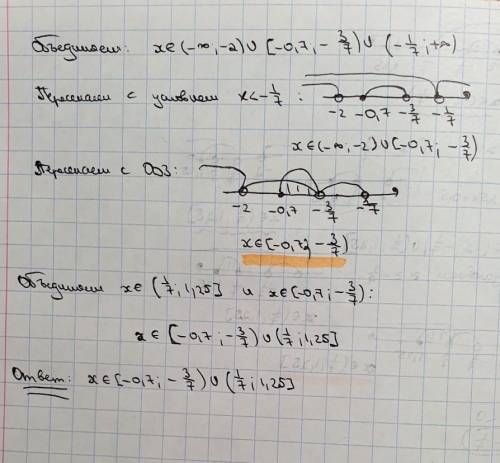 Объединяем: x∈(-∞,-2)∪[-0,7,-3/7)∪(-1/7;+∞)
Пересекаем с условием x<-1/7:
-2 -0,7 -3/7 -1/7
x∈(-∞,-2)∪[-0,7;-3/7)
Пересекаем с ОДЗ:
-2 -0,7 -3/7 -3/7
x∈[-0,7;-3/7)
Объединяем x∈(1/7;1,25] и x∈[-0,7;-3/7):
x∈[-0,7;-3/7)∪(1/7;1,25]
Ответ: x∈[-0,7;-3/7)∪(1/7;1,25]